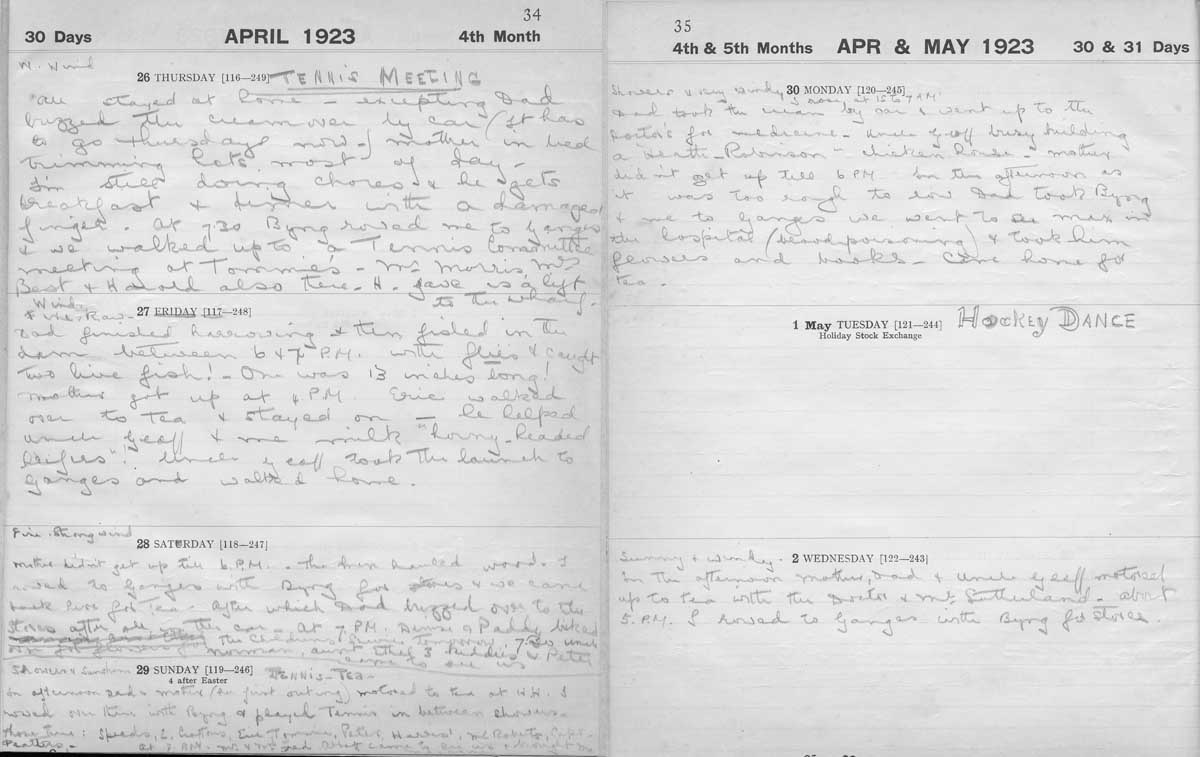 34
30 Days APRIL 1923 4th Month
N. Wind
26 THURSDAY [116—249] TENNIS MEETING
All stayed at home – excepting Dad
buzzed the cream over by car (It has
to go Thursdays now –) mother in bed
trimming hats most of day –
I'm still doing chores & he gets
breakfast & dinner with a damaged
finger. At 7.30 Byng rowed me to Ganges
& we walked up to a Tennis Committee
meeting at Tommie's – Mr Morris, Mrs
Best & Harold also there. H. gave us a lift
to the wharf.
Wind
& Fine, Raw
27 FRIDAY [117—248]
Dad finished harrowing & then fished in the
dam between 6 & 7 P.M. with flies & caught
two live fish! – One was 13 inches long!
Mother got up at 4 P.M. Eric walked
over to tea & stayed on – he helped
Uncle Geoff & me milk "horny-headed
heifers"! Uncle Geoff took the launch to
Ganges and walked home.
Fine. Strong wind
28 SATURDAY [118—247]
Mother didn't get up till 6 P.M. – The men hauled wood. I
rowed to Ganges with Byng for stores & we came
back here for tea. After which Dad buzzed over to the
stores after all – the car – at 7 P.M. & Paddy biked
for flowers for the
Norman, Aunt 3 kiddies & Peter
came to see us
Showers & Sunshine
29 SUNDAY [119—246]
4 after Easter
TENNIS – TEA –
In afternoon Dad & mother (her first outing) motored to tea at H.H. I
rowed over there with Byng & played Tennis in between showers –
Those there: Speeds, Croftons, Eric, Tommie, Peter, Harris', Mr Roberts, Capt.
at 7 P.M. Mr & Mrs came to see us & brought me
35
4th & 5th Months APR & MAY 1923 30 & 31 Days
Showers & very windy
30 MONDAY [120—245]
Dad took the cream by car & went up to the
Doctor's for medicine – Uncle Geoff busy building
a Heath-Robinson "chicken house – mother
didn't get up till 6 P.M. In the afternoon as
it was too rough to row Dad took Byng
& me to Ganges we went to see Max in
the hospital (blood poisoning) & took him
flowers and books – Came home for
tea.
1 May TUESDAY [121—244] HOCKEY DANCE
Holiday Stock Exchange
Sunny & windy.
2 WEDNESDAY [122—243]
In the afternoon mother, Dad & Uncle Geoff motored
up to tea with the Doctor & Mrs Sutherland – about
5. P.M. I rowed to Ganges with Byng for stores.